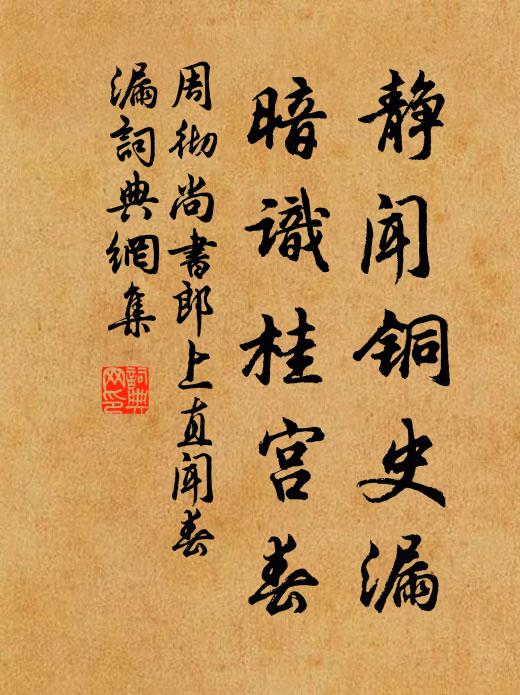 静闻铜史漏
暗識桂宫春
周彻尚書郎上直聞春
漏詞典網集
詞典
网印